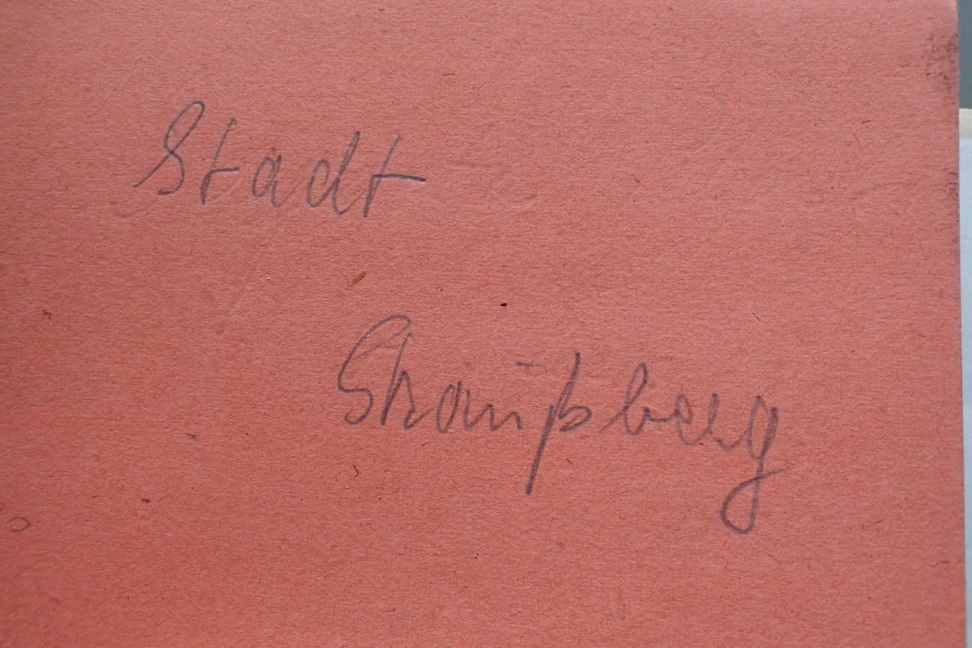 Stadt
Straußberg